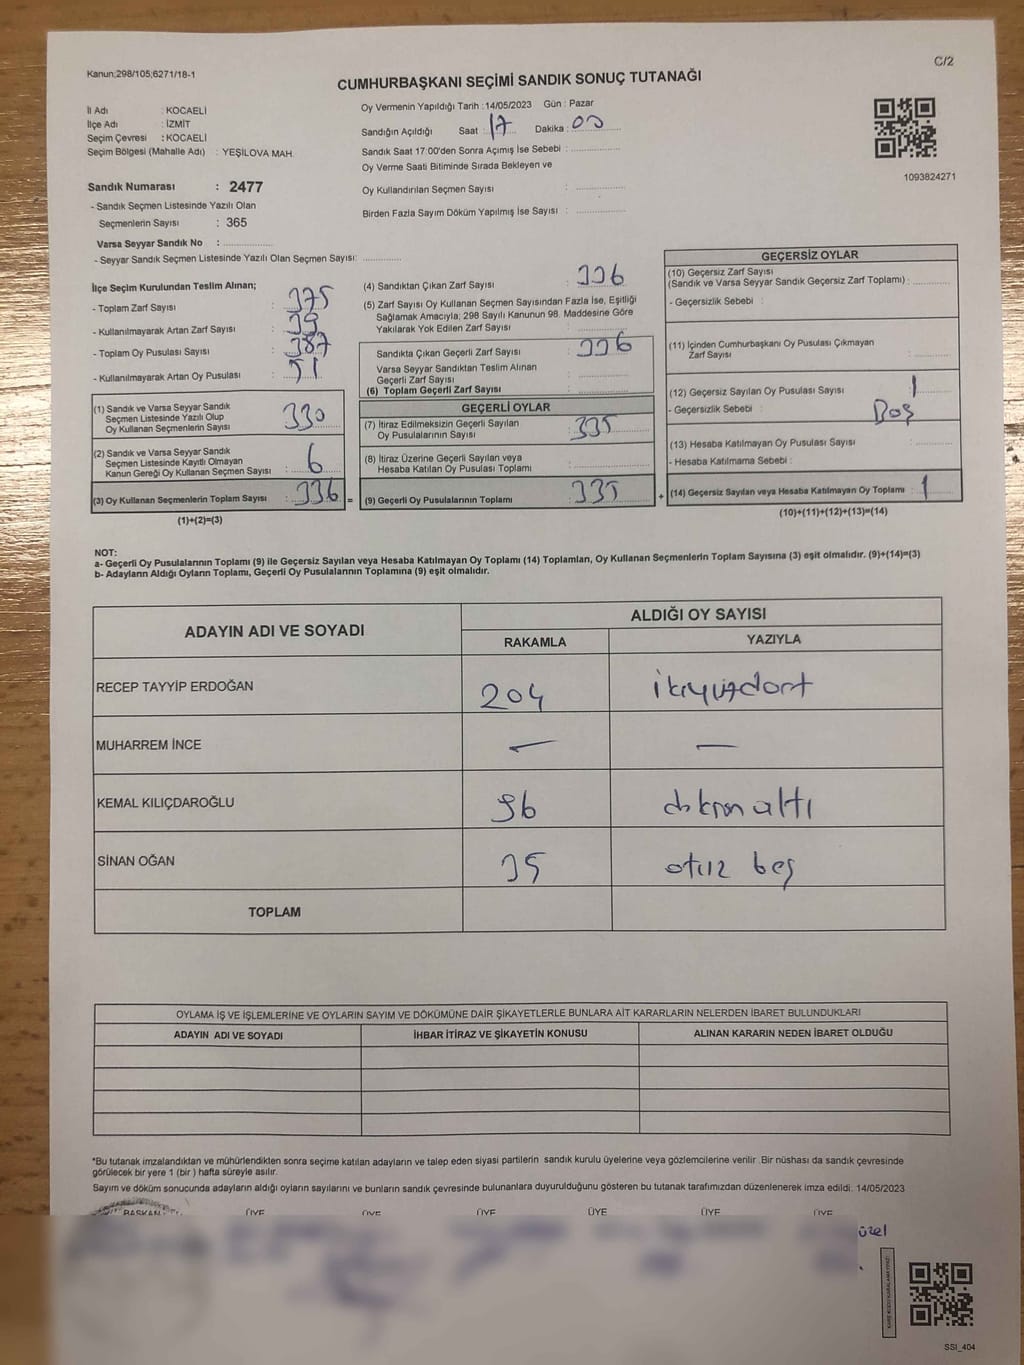 Kanun;298/105;6271/18-1
C/2
CUMHURBAŞKANI SEÇİMİ SANDIK SONUÇ TUTANAĞI
İl Adı : KOCAELİ
İlçe Adı : İZMİT
Seçim Çevresi : KOCAELİ
Seçim Bölgesi (Mahalle Adı) : YEŞİLOVA MAH.
Sandık Numarası : 2477
- Sandık Seçmen Listesinde Yazılı Olan
Seçmenlerin Sayısı : 365
Varsa Seyyar Sandık No :
- Seyyar Sandık Seçmen Listesinde Yazılı Olan Seçmen Sayısı:
Oy Vermenin Yapıldığı Tarih :14/05/2023 Gün : Pazar
Sandığın Açıldığı Saat : 17 Dakika : 00
Sandık Saat 17:00'den Sonra Açımış İse Sebebi :
Oy Verme Saati Bitiminde Sırada Bekleyen ve
Oy Kullandırılan Seçmen Sayısı :
Birden Fazla Sayım Döküm Yapılmış İse Sayısı :
1093824271
İlçe Seçim Kurulundan Teslim Alınan;
- Toplam Zarf Sayısı : 375
- Kullanılmayarak Artan Zarf Sayısı : 39
- Toplam Oy Pusulası Sayısı : 387
- Kullanılmayarak Artan Oy Pusulası : 51
(1) Sandık ve Varsa Seyyar Sandık
Seçmen Listesinde Yazılı Olup
Oy Kullanan Seçmenlerin Sayısı : 330
(2) Sandık ve Varsa Seyyar Sandık
Seçmen Listesinde Kayıtlı Olmayan
Kanun Gereği Oy Kullanan Seçmen Sayısı : 6
(3) Oy Kullanan Seçmenlerin Toplam Sayısı : 336 =
(1)+(2)=(3)
(4) Sandıktan Çıkan Zarf Sayısı : 336
(5) Zarf Sayısı Oy Kullanan Seçmen Sayısından Fazla İse, Eşitliği
Sağlamak Amacıyla; 298 Sayılı Kanunun 98. Maddesine Göre
Yakılarak Yok Edilen Zarf Sayısı :
Sandıkta Çıkan Geçerli Zarf Sayısı : 336
Varsa Seyyar Sandıktan Teslim Alınan
Geçerli Zarf Sayısı :
(6) Toplam Geçerli Zarf Sayısı :
GEÇERLİ OYLAR
(7) İtiraz Edilmeksizin Geçerli Sayılan
Oy Pusulalarının Sayısı : 335
(8) İtiraz Üzerine Geçerli Sayılan veya
Hesaba Katılan Oy Pusulası Toplamı :
(9) Geçerli Oy Pusulalarının Toplamı : 335 +
GEÇERSİZ OYLAR
(10) Geçersiz Zarf Sayısı
(Sandık ve Varsa Seyyar Sandık Geçersiz Zarf Toplamı) :
- Geçersizlik Sebebi :
(11) İçinden Cumhurbaşkanı Oy Pusulası Çıkmayan
Zarf Sayısı :
(12) Geçersiz Sayılan Oy Pusulası Sayısı : 1
- Geçersizlik Sebebi : Boş
(13) Hesaba Katılmayan Oy Pusulası Sayısı :
- Hesaba Katılmama Sebebi :
(14) Geçersiz Sayılan veya Hesaba Katılmayan Oy Toplamı : 1
(10)+(11)+(12)+(13)=(14)
NOT:
a- Geçerli Oy Pusulalarının Toplamı (9) ile Geçersiz Sayılan veya Hesaba Katılmayan Oy Toplamı (14) Toplamları, Oy Kullanan Seçmenlerin Toplam Sayısına (3) eşit olmalıdır. (9)+(14)=(3)
b- Adayların Aldığı Oyların Toplamı, Geçerli Oy Pusulalarının Toplamına (9) eşit olmalıdır.
ADAYIN ADI VE SOYADI
ALDIĞI OY SAYISI
RAKAMLA YAZIYLA
RECEP TAYYİP ERDOĞAN 204 ikiyüzdört
MUHARREM İNCE — —
KEMAL KILIÇDAROĞLU 96 doksan altı
SİNAN OĞAN 35 otuz beş
TOPLAM
OYLAMA İŞ VE İŞLEMLERİNE VE OYLARIN SAYIM VE DÖKÜMÜNE DAİR ŞİKAYETLERLE BUNLARA AİT KARARLARIN NELERDEN İBARET BULUNDUKLARI
ADAYIN ADI VE SOYADI İHBAR İTİRAZ VE ŞİKAYETİN KONUSU ALINAN KARARIN NEDEN İBARET OLDUĞU
*Bu tutanak imzalandıktan ve mühürlendikten sonra seçime katılan adayların ve talep eden siyasi partilerin sandık kurulu üyelerine veya gözlemcilerine verilir .Bir nüshası da sandık çevresinde
görülecek bir yere 1 (bir ) hafta süreyle asılır.
Sayım ve döküm sonucunda adayların aldığı oyların sayılarını ve bunların sandık çevresinde bulunanlara duyurulduğunu gösteren bu tutanak tarafımızdan düzenlenerek imza edildi. 14/05/2023
BAŞKAN ÜYE ÜYE ÜYE ÜYE ÜYE ÜYE
SSI_404